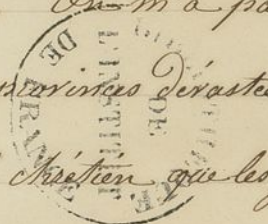 On m'a pa
provinces dévaste
chrétien que les
BIBLIOTHEQUE
DE
L'INSTITUT
DE FRANCE